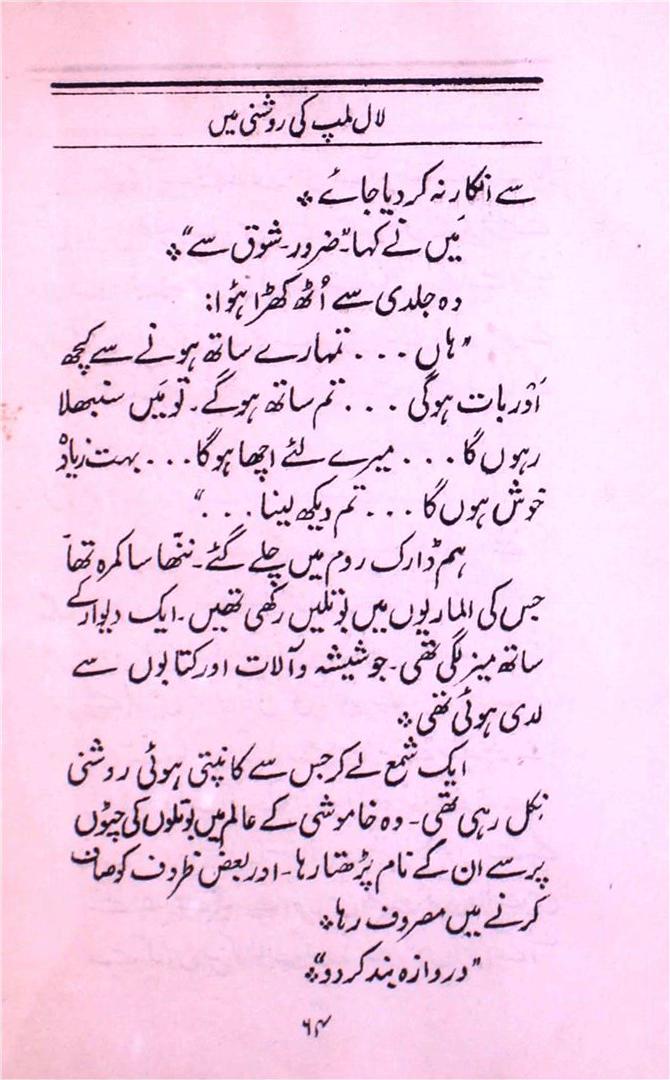 لال لمپ کی روشنی میں
سے انکار نہ کر دیا جائے ؞
مَیں نے کہا۔ "ضرور۔ شوق سے" ؞
وہ جلدی سے اُٹھ کھڑا ہؤا:
"ہاں ... تمہارے ساتھ ہونے سے کچھ
اَور بات ہوگی ... تم ساتھ ہوگے۔ تو مَیں سنبھلا
رہوں گا ... میرے لئے اچھا ہوگا ... بہت زیادہ
خوش ہوں گا ... تم دیکھ لینا ..."
ہم ڈارک روم میں چلے گئے۔ ننّھا سا کمرہ تھا
جس کی الماریوں میں بوتلیں رکھی تھیں۔ ایک دیوار کے
ساتھ میز لگی تھی۔ جو شیشہ و آلات اور کتابوں سے
لدی ہوئی تھی ؞
ایک شمع لے کر جس سے کانپتی ہوئی روشنی
نکل رہی تھی۔ وہ خاموشی کے عالم میں بوتلوں کی چٹوں
پر سے ان کے نام پڑھتا رہا۔ اور بعض ظروف کو صاف
کرنے میں مصروف رہا ؞
"دروازہ بند کر دو" ؞
۶۴